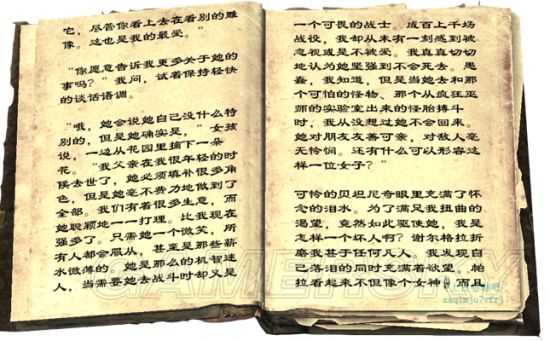 它，尽管你看上去在看别的雕
像。这也是我的最爱。”
“你愿意告诉我更多关于她的
事吗？”我问，试着保持轻快
的谈话语调。
“哦，她会说她自己没什么特
别的，但是她确实是，”女孩
说，一边从花园里摘下一朵
花。“我父亲在我很年轻的时
候去世了，她必须填补很多角
色，但是她毫不费力地做到了
全部。我们有着很多生意，而
她聪颖地一一打理。比我现在
强多了。只需她一个微笑，所
有人都会服从，甚至是那些薪
水微薄的。她是那么的机智迷
人，当需要她去战斗时却又是
一个可畏的战士。成百上千场
战役，我却从未有一刻感到被
忽视或是不被爱。我真真切切
地认为她坚强到不会死去。愚
蠢，我知道，但是当她去和那
个可怕的怪物、那个从疯狂巫
师的实验室出来的怪胎搏斗
时，我从没想过她不会回来。
她对朋友友善可亲，对敌人毫
无怜悯。还有什么可以形容这
样一位女子？”
可怜的贝坦尼奇眼里充满了怀
念的泪水。为了满足我扭曲的
渴望，竟然如此驱使她，我是
怎样一个坏人啊？谢尔格拉折
磨我甚于任何凡人，我发现自
己落泪的同时充满着欲望。帕
拉看起来不但像个女神，而且
GAMERSKY
zaqimju7vfr4